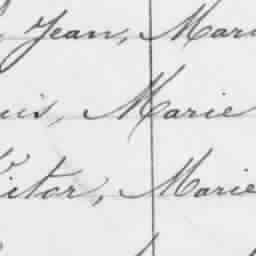 Jean, Mari
uis, Marie
ictor, Marie